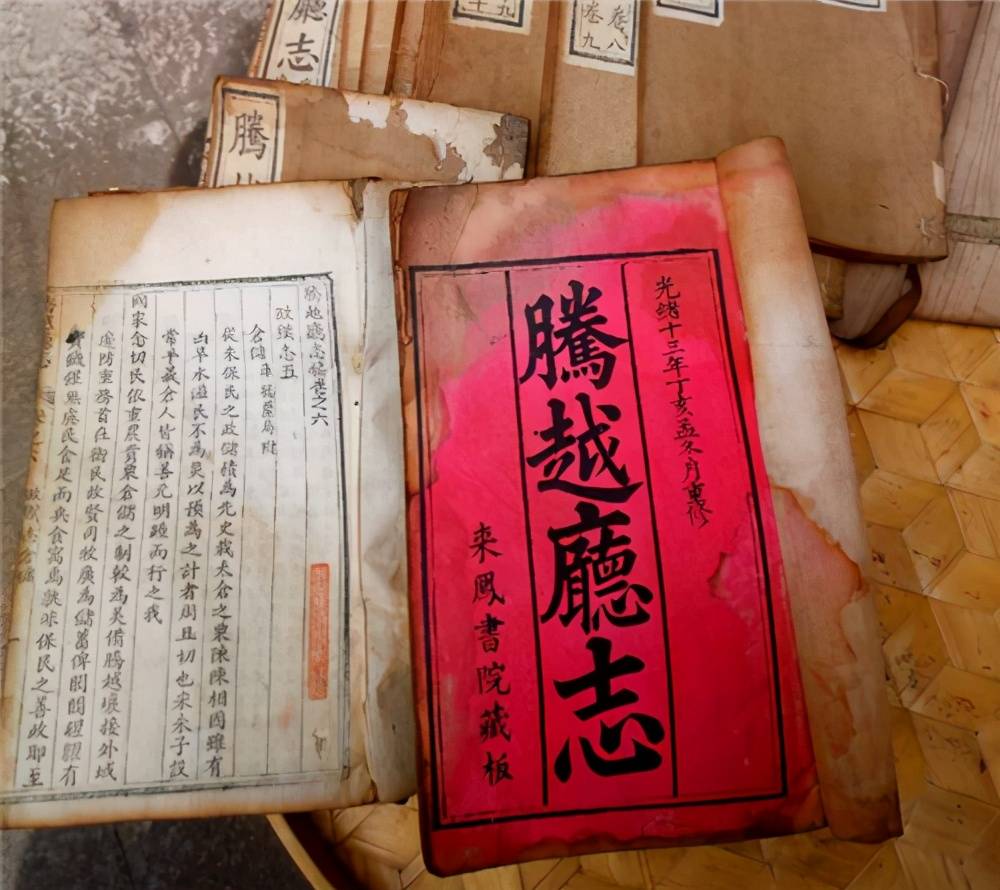 廳志
騰越
卷八
卷九
騰越廳志稿卷之六
志五
倉儲
從來保民之政儲積為先史載太倉之粟陳陳相因雖有
凶旱水溢民不為災以預為之計者周且切也宋朱子設
常平義倉人皆稱善元明踵而行之我
國家念切民依重農貴粟倉儲之制較為美備騰越壤接外域
邊防重務首在衛民故賢司牧廣為儲蓄俾閭閻經額有
民食足而兵食寓焉 非保民之善政耶至
光緒十三年丁亥孟冬月重修
騰越廳志
来鳳書院藏板